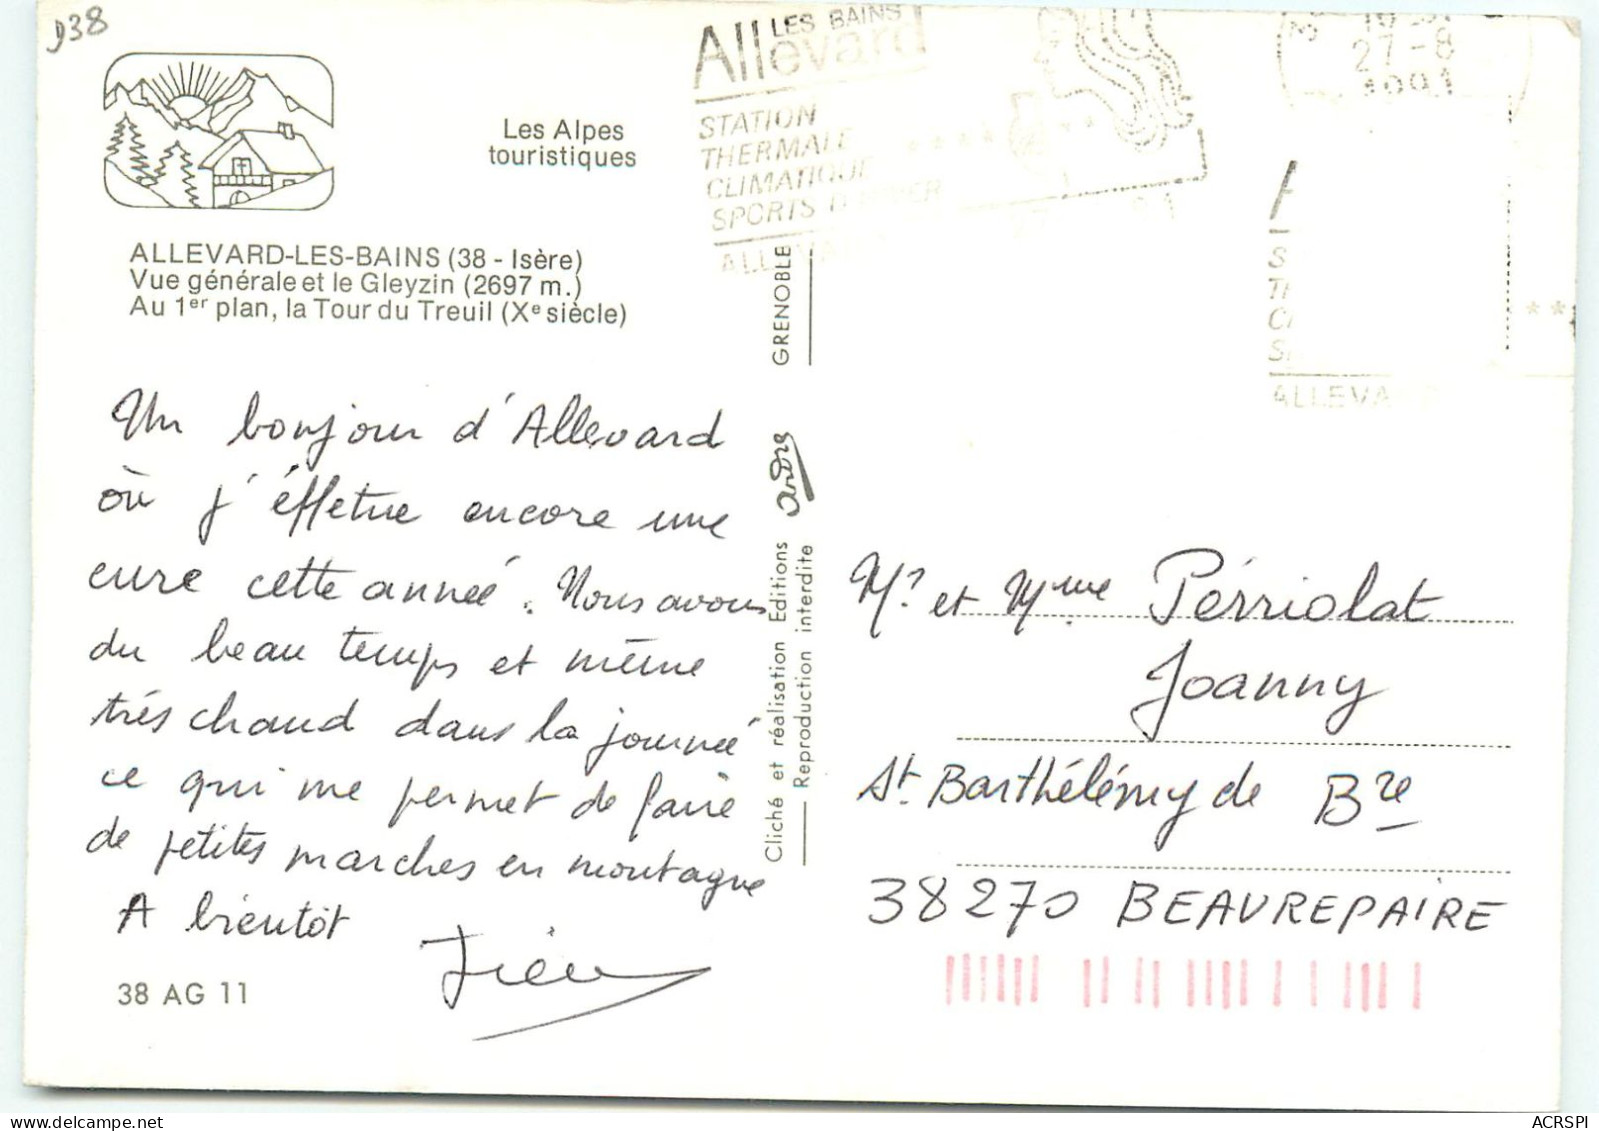 D38
Les Alpes
touristiques
ALLEVARD-LES-BAINS (38 - Isère)
Vue générale et le Gleyzin (2697 m.)
Au 1er plan, la Tour du Treuil (Xe siècle)
Un bonjour d'Allevard
où j'éffetue encore une
cure cette année. Nous avons
du beau temps et même
très chaud dans la journée
ce qui me permet de faire
de petites marches en montagne
A bientôt
38 AG 11
GRENOBLE
André
Cliché et réalisation Editions
Reproduction interdite
LES BAINS
Allevard
STATION
THERMALE
CLIMATIQUE
SPORTS D'HIVER
ALLEVARD
27-8
1991
ALLEVARD
Mr et Mme Pérriolat
Joanny
St Barthélémy de Bre
38270 BEAUREPAIRE
delcampe.net
ACRSPI